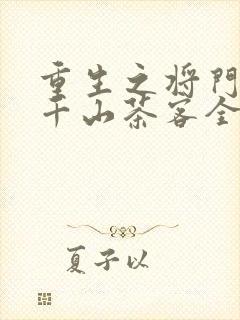 重生之将门
千山茶客全
夏子以